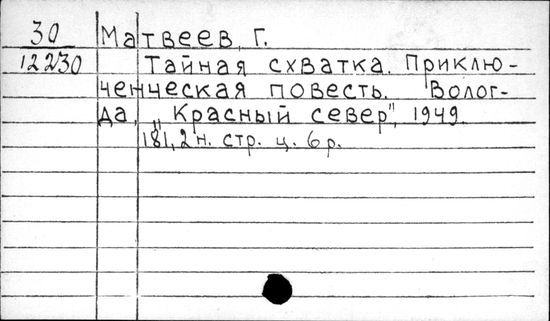 30 Матвеев, Г.
12230 Тайная схватка. Приклю-
ченческая повесть. Волог-
да, „Красный север", 1949.
181, 2 н. стр. ц. 6 р.